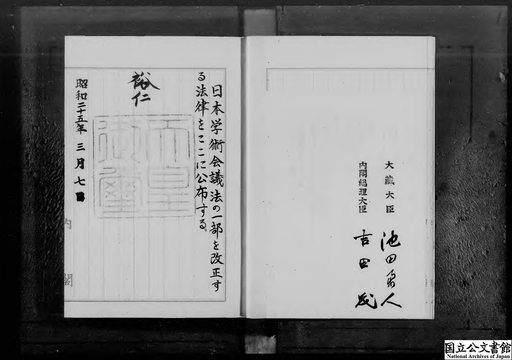 日本学術会議法の一部を改正す
る法律をここに公布する。
裕仁
天皇
御璽
昭和二十五年三月七日
内閣
大蔵大臣 池田勇人
内閣総理大臣 吉田茂
国立公文書館
National Archives of Japan